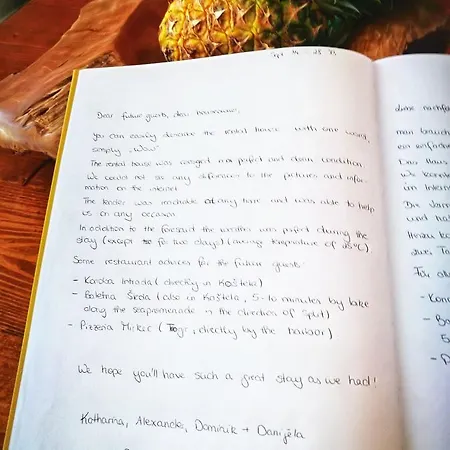 Dear future guests, dear houseowner,
you can easily describe the rental house with one word,
simply „Wow"
The rental house was received in a perfect and clean condition.
We could not see any differences to the pictures and infor-
mation on the internet
The lender was reachable at any time and was able to help
us on any occasion.
In addition to the foresaid the weather was perfect during the
stay (except for two days) (average temperature of 25°C).
Some restaurant advices for the future guests:
- Konoba Intrada (directly in Kaštela)
- Baletna Škola (also in Kaštela, 5-10 minutes by bike
along the seapromenade in the direction of Split)
- Pizzeria Mirkec (Trogir, directly by the harbor)
We hope you'll have such a great stay as we had!
Katharina, Alexander, Dominik + Danijela
man brauch
ein einfache
Das Haus
wir konnte
im Intern
und hat
Für al
- Kono
- Ba
5
- P